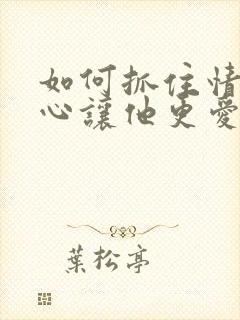 如何抓住情
心讓他更愛
葉松亭